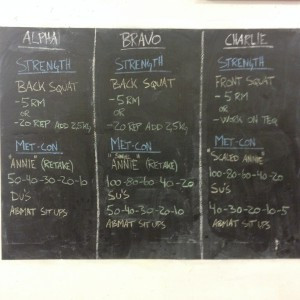 ALPHA
STRENGTH
BACK SQUAT
- 5 RM
OR
- 20 REP ADD 2.5KG
MET-CON
"ANNIE" (RETAKE)
50-40-30-20-10
DU'S
ABMAT SIT UPS
BRAVO
STRENGTH
BACK SQUAT
- 5 RM
OR
- 20 REP ADD 2.5KG
MET-CON
"SINGLE
ANNIE" (RETAKE)
100-80-60-40-20
SU'S
50-40-30-20-10
ABMAT SIT UPS
CHARLIE
STRENGTH
FRONT SQUAT
- 5 RM
OR
- WORK ON TEQ
MET-CON
"SCALED ANNIE"
100-80-60-40-20
SU'S
40-30-20-10-5
ABMAT SIT UPS